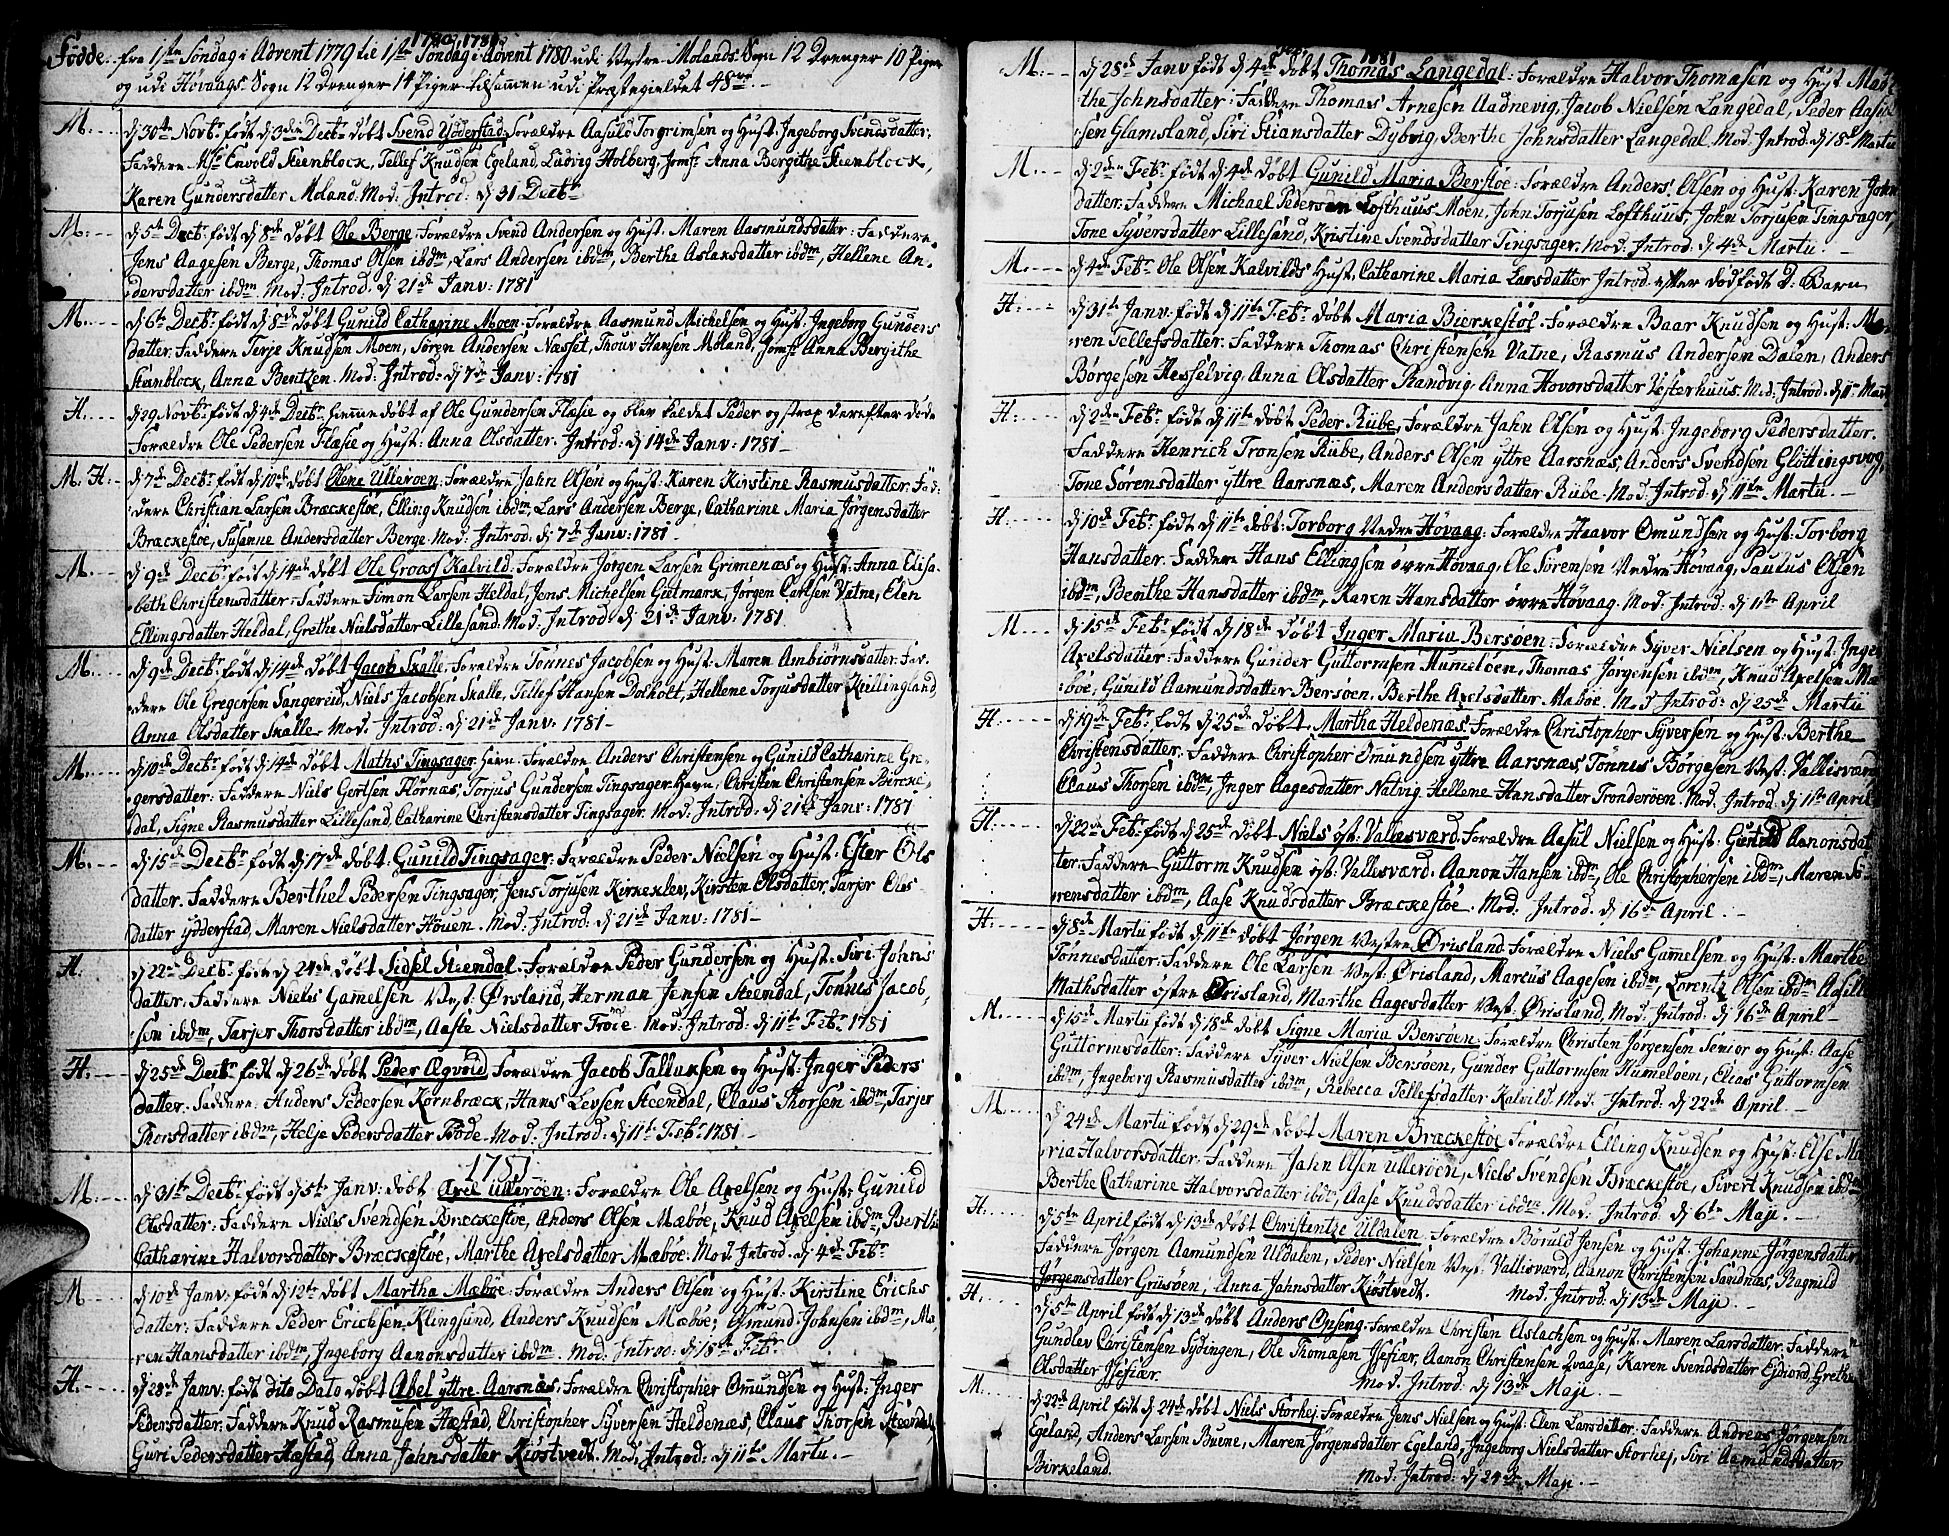 1780, 1781
Fødde. fra 1ste Søndag i Advent 1779 til 1ste Søndag i Advent 1780 udi Vestre Molands Sogn 12 Drenger 10 Piger
og udi Høvaags Sogn 12 Drenger 14 Piger tilsammen udi Præstegieldet 48
M. d 30te Novbr født d 3de Decbr døbt Svend Ydderstad Forældre Aasuld Torgrimsen og Hust: Ingeborg Svendsdatter.
Faddere Msr Envold Steenblock, Tellef Knudsen Egeland, Ludvig Holberg, Jomf: Anna Bergithe Steenblock,
Karen Gundersdatter Moland. Mod: Introd: d 31 Decbr
M: d 5te Decbr født d 8de døbt Ole Berge. Forældre Svend Andersen og Hust: Maren Aasmundsdatter: Faddere
Jens Aagesen Berge, Thomas Olsen ibdm, Lars Andersen ibdm, Berthe Aslaksdatter ibdm, Hellene An-
dersdatter ibdm. Mod: Introd: d 21de Janv: 1781
M. d 6te Decbr født d 8de døbt Gunild Catharine Moen. Forældre Aasmund Michelsen og Hust: Ingeborg Gunders
datter. Faddere Terje Knudsen Moen, Søren Andersen Næsset, Thouv Hansen Moland, Jomf: Anna Bergithe
Steenblock, Anna Bentzen. Mod: Introd: d 7de Janv: 1781
H. d 29 Novbr født d 4de Decbr hjemmedøbt af Ole Gundersen Flæsie og blev kaldet Peder og strax derefter døde
Forældre Ole Pedersen Flæsie og Hust: Anna Olsdatter. Introd: d 14de Janv: 1781
M. H. d 7de Decbr født d 10de døbt Olene Ulleroen. Forældre Jahn Olsen og Hust: Karen Kirstine Rasmusdatter. Fad-
dere Christian Larsen Bræckestøe, Elling Knudsen ibdm, Lars Andersen Berge, Catharine Maria Jørgensdatter
Bræckestøe, Susanne Andersdatter Berge. Mod: Introd: d 7de Janv: 1781.
M. d 9de Decbr født d 14de døbt Ole Groass Kalvild. Forældre Jørgen Larsen Grimenæs og Hust: Anna Elisa-
beth Christensdatter. Faddere Simon Larsen Heldal, Jens Michelsen Gietmark, Jørgen Carlsen Vatne, Elen
Ellingsdatter Heldal, Grethe Nielsdatter Lillesand. Mod: Introd: d 21de Janv: 1781.
M. d 9de Decbr født d 14de døbt Jacob Skalle. Forældre Tønnes Jacobsen og Hust: Maren Ambiørnsdatter. Fad-
dere Ole Gregersen Sangereid, Niels Jacobsen Skalle, Tellef Hansen Dolholt, Hellene Torjusdatter Krillingland,
Anna Olsdatter Skalle. Mod: Introd: d 21de Janv: 1781
M. d 10de Decbr født d 14de døbt Maths Tingsager Havn. Forældre Anders Christensen og Gunild Catharine Gre-
gersdatter: Faddere Niels Gertsen Hornæs, Torjus Gundersen Tingsager Havn, Christen Christensen Bircke-
dal, Signe Rasmusdatter Lillesand, Catharine Christensdatter Tingsager. Mod: Introd: d 21de Janv: 1781
M. d 15de Decbr født d 17de døbt Gunild Tingsager. Forældre Peder Nielsen og Hust: Ester Ols
datter. Faddere Berthel Pedersen Tingsager, Jens Torjusen Kirkeklev, Kirsten Olsdatter, Tarjer Ols-
datter Ydderstad, Maren Nielsdatter Houen. Mod: Introd: d 21de Janv: 1781
H. d 22de Decbr født d 24de døbt Sidsel Steendal. Forældre Peder Gundersen og Hust: Siri Johns
datter: Faddere Niels Gamelsen Vest: Ørsland, Herman Jensen Steendal, Tønnes Jacob-
sen ibdm, Tarjer Thorsdatter ibdm, Aaste Nielsdatter Trøe. Mod: Introd: d 11te Febr 1781
H. d 25de Decbr født d 26de døbt Peder Ægvold. Forældre Jacob Talluksen og Hust: Inger Peders
datter. Faddere: Anders Pedersen Kornbræck, Hans Levsen Steendal, Claus Thorsen ibdm, Tarjer
Thorsdatter ibdm, Helje Pedersdatter Frøde. Mod: Introd: d 11te Febr 1781
1781
M. d 31te Decbr født d 5te Janv: døbt Axel Ullerøen: Forældre Ole Axelsen og Hust: Gunild
Olsdatter: Faddere Niels Svendsen Bræckestøe, Anders Olsen Mæbøe, Knud Axelsen ibdm, Berthe
Catharine Halvorsdatter Bræckestøe, Marthe Axelsdatter Mæbøe. Mod: Introd: d 4de Febr
M d 10de Janv: født d 12te døbt Martha Mæbøe. Forældre Anders Olsen og Hust: Kirstine Erichs
datter: Faddere Peder Erichsen Klingsund, Anders Knudsen Mæbøe, Omund Johnsen ibdm, Ma-
ren Hansdatter ibdm, Ingeborg Aanonsdatter ibdm. Mod: Introd: d 18de Febr
H. d 28de Janv: født dito Dato døbt Abel yttre Aarsnæs. Forældre Christopher Omundsen og Hust: Inger
Pedersdatter: Faddere Knud Rasmusen Hæstad, Christopher Syversen Heldenæs, Claus Thorsen Steendal,
Guri Pedersdatter Hæstad, Anna Jahnsdatter Kiøstvedt. Mod: Introd: d 11te Martu.
1781
M. d 28de Janv født d 4de Febr døbt Thomas Langedal. Forældre Halvor Thomasen og Hust Mar-
the Johnsdatter: Faddere Thomas Arnesen Aadnevig, Jacob Nielsen Langedal, Peder Aasul-
sen Glamsland, Siri Stiansdatter Dybvig, Berthe Johnsdatter Langedal. Mod: Introd: d 18de Martu
M. d 2den Febr født d 4de døbt Gunild Maria Berstøe: Forældre Anders Olsen og Hust: Karen John
datter. Faddere Michael Pedersen Lofthuus Moen, John Torjusen Lofthuus, John Torjusen Tingsager,
Tone Syversdatter Lillesand, Kristine Svendsdatter Tingsager. Mod: Introd: d 4de Martu.
M. d 4de Febr Ole Olsen Kalvilds Hust: Catharine Maria Larsdatter Introd: efter dødfødt D: Barn
H. d 31te Janv: født d 11te Febr: døbt Maria Bierkestøl. Forældre Baar Knudsen og Hust: Ma-
ren Tellefsdatter. Faddere Thomas Christensen Vatne, Rasmus Andersen Dalen, Anders
Børgesen Hesselvig, Anna Olsdatter Randvig, Anna Hovorsdatter Vesterhuus. Mod: Introd: d 11te Martu
H. d 2den Febr: født d 11te døbt Peder Ribe. Forældre Jahn Olsen og Hust: Ingeborg Pedersdatter.
Faddere Henrich Tronsen Ribe, Anders Olsen yttre Aarsnæs, Anders Svendsen Gløttingsvog,
Tone Sørensdatter yttre Aarsnæs, Maren Andersdatter Ribe. Mod: Introd: d 11te Martu.
H. d 10de Febr født d 11te døbt Torborg Nedre Høvaag: Forældre Haavor Omundsen og Hust: Torborg
Hansdatter. Faddere Hans Ellingsen øvre Høvaag, Ole Sørensen Nedre Høvaag, Paulus Olsen
ibdm, Benthe Hansdatter ibdm, Karen Hansdatter øvre Høvaag. Mod: Introd: d 11te April
M. d 15de Febr: født d 18de døbt Inger Maria Bersøen: Forældre Syver Nielsen og Hust: Inger
Axelsdatter: Faddere Gunder Guttormsen Humeløen, Thomas Jørgensen ibdm, Knud Axelsen Mæ-
bøe, Gunild Aamundsdatter Bersøen, Berthe Axelsdatter Mæbøe. Mod Introd: d 25de Martu
H. d 19de Febr: født d 25de døbt Martha Heldenæs. Forældre Christopher Syversen og Hust: Berthe
Christensdatter. Faddere Christopher Omundsen yttre Aarsnæs, Tønnes Børgesen Vest: Vallisværd,
Claus Thorsen ibdm, Inger Aagesdatter Natvig, Hellene Hansdatter Tronderøen. Mod: Introd: d 11te April
H. d 22de Febr født d 25de døbt Niels øst: Vallisværd. Forældre Aasul Nielsen og Hust: Gunild Aanonsdat
ter. Faddere Guttorm Knudsen øst: Vallisværd, Aanon Hansen ibdm, Ole Christophersen ibdm, Maren Sø-
rensdatter ibdm, Aase Knudsdatter Bræckestøe. Mod. Introd. d 16de April.
H. d 8de Martu født d 11te døbt Jørgen Vestre Ørisland. Forældre Niels Gamelsen og Hust: Marthe
Tønnesdatter: Faddere Ole Larsen Vest: Ørisland, Marcus Aagesen ibdm, Lorentz Olsen ibdm Aasille
Mathsdatter østre Ørisland, Marthe Aagesdatter Vest: Ørisland, Mod: Introd: d 16de April
M. d 15de Martu født d 18de døbt Signe Maria Bersøen: Forældre Christen Jørgensen Senior og Hust: Aase
Guttormsdatter: Faddere Syver Nielsen Bersøen, Gunder Guttormsen Humeløen, Elias Guttormsen
ibdm, Ingeborg Rasmusdatter ibdm, Rebecca Tellefsdatter Kalvild. Mod: Introd: d 22de April.
M. d 24de Martu født d 29de døbt Maren Bræckestøe Forældre Elling Knudsen og Hust: Else Ma
ria Halvorsdatter: Faddere Jahn Olsen Ullerøen, Niels Svendsen Bræckestøe, Sivert Knudsen ibdm
Berthe Catharine Halvorsdatter ibdm, Aase Knudsdatter ibdm Mod: Introd: d 6te Maji.
H. d 5te April født d 13de døbt Christentze Uldalen. Forældre Børuld Jensen og Hust: Johanne Jørgensdatter
Faddere Jørgen Aamundsen Uldalen, Peder Nielsen Vest: Vallisværd, Aanon Christensen Sandnæs, Ragnild
Jørgensdatter Griusøen, Anna Jahnsdatter Kiøstvedt. Mod: Introd: d 13de Maji
H. d 5te April født d 13de døbt Anders Opseng. Forældre Christen Aslachsen og Hust: Maren Larsdatter. Faddere
Gundlev Christensen Sydingen, Ole Thomasen Isefiær, Aanon Christensen Qvaase, Karen Svendsdatter Eidnord, Grethe
Olsdatter Isefiær. Mod: Introd: d 13de Maji
M. d 22de April født d 24de døbt Niels Storhej. Forældre Jens Nielsen og Hust: Elen Larsdatter: Faddere Andreas Jørgensen
Egeland, Anders Larsen Buene, Maren Jørgensdatter Egeland, Ingeborg Nielsdatter Storhej, Siri Aamundsdatter
Birkeland. Mod: Introd: d 24de Maji.